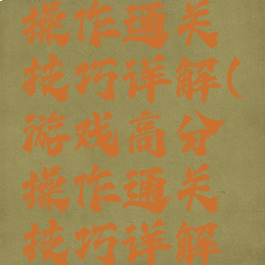 操作通关
技巧详解(
游戏高分
操作通关
技巧详解